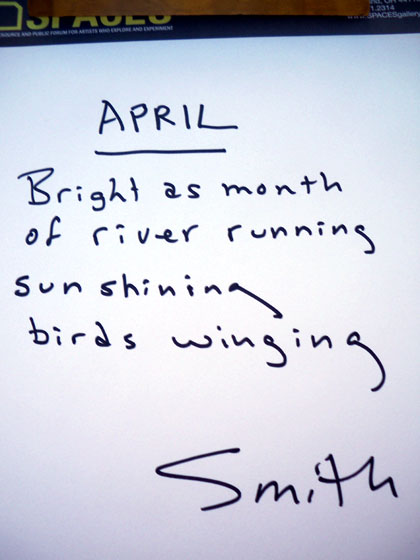 SPACES
RESOURCE AND PUBLIC FORUM FOR ARTISTS WHO EXPLORE AND EXPERIMENT
.2314
www.SPACESgallery
APRIL
Bright as month
of river running
sun shining
birds winging
Smith